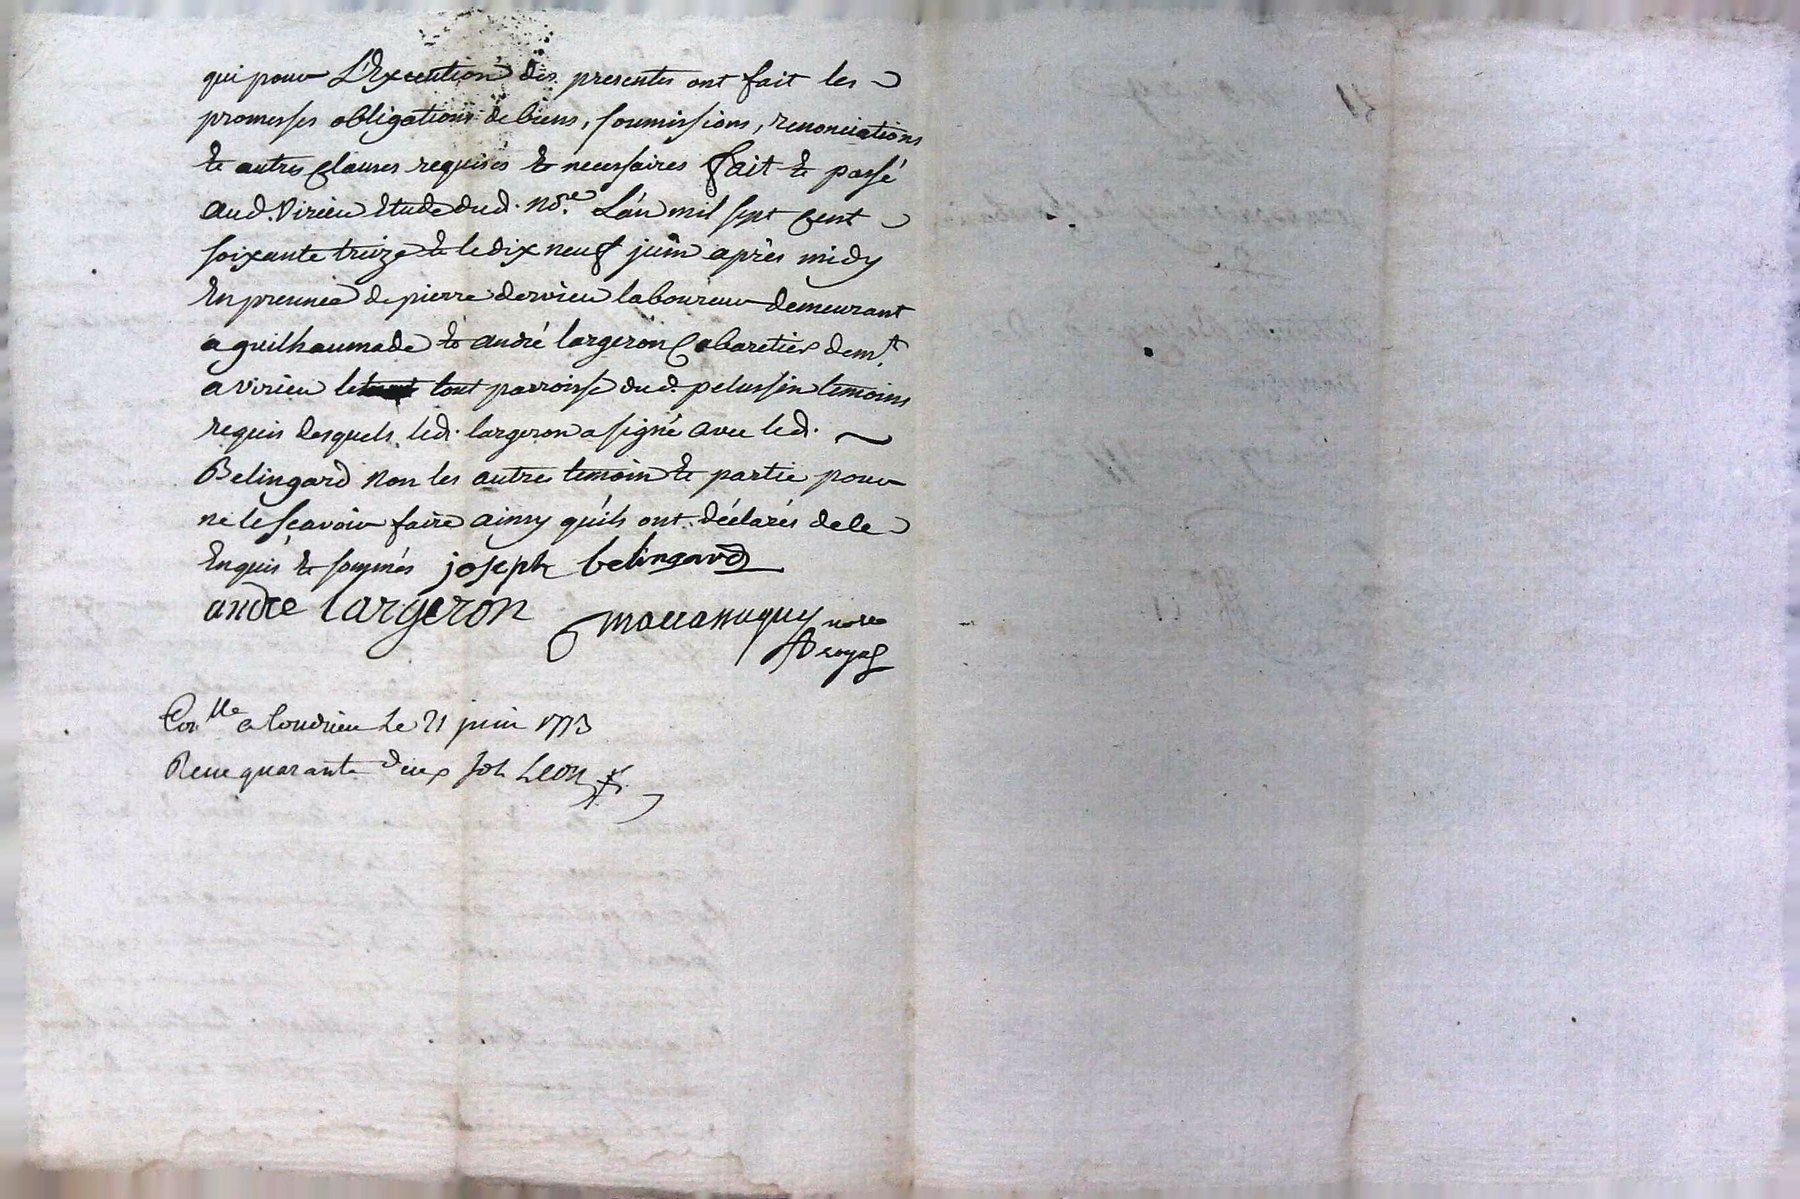 qui pour L'Execution des presentes ont fait les
promesses obligations de biens, soumissions, renonciations
& autres clauses requises & necessaires fait & passé
aud. Virieu Etude dud. no.re L'an mil sept cent
soixante treize & le dix neuf juin après midy
En presence de pierre dervieu laboureur demeurant
a guilhaumade & andré largeron Cabaretier dem.t
a virieu le tout parroisse dud. pelussin temoins
requis desquels led. largeron a signé avec led.
Belingard non les autres temoin & partie pour
ne le sçavoir faire ainsy qu'ils ont déclarés de ce
Enquis & sommés joseph belingard
andre largeron no.re
royal
Con.lle a Condrieu Le 21 juin 1773
Reçu quarante deux sols Leon